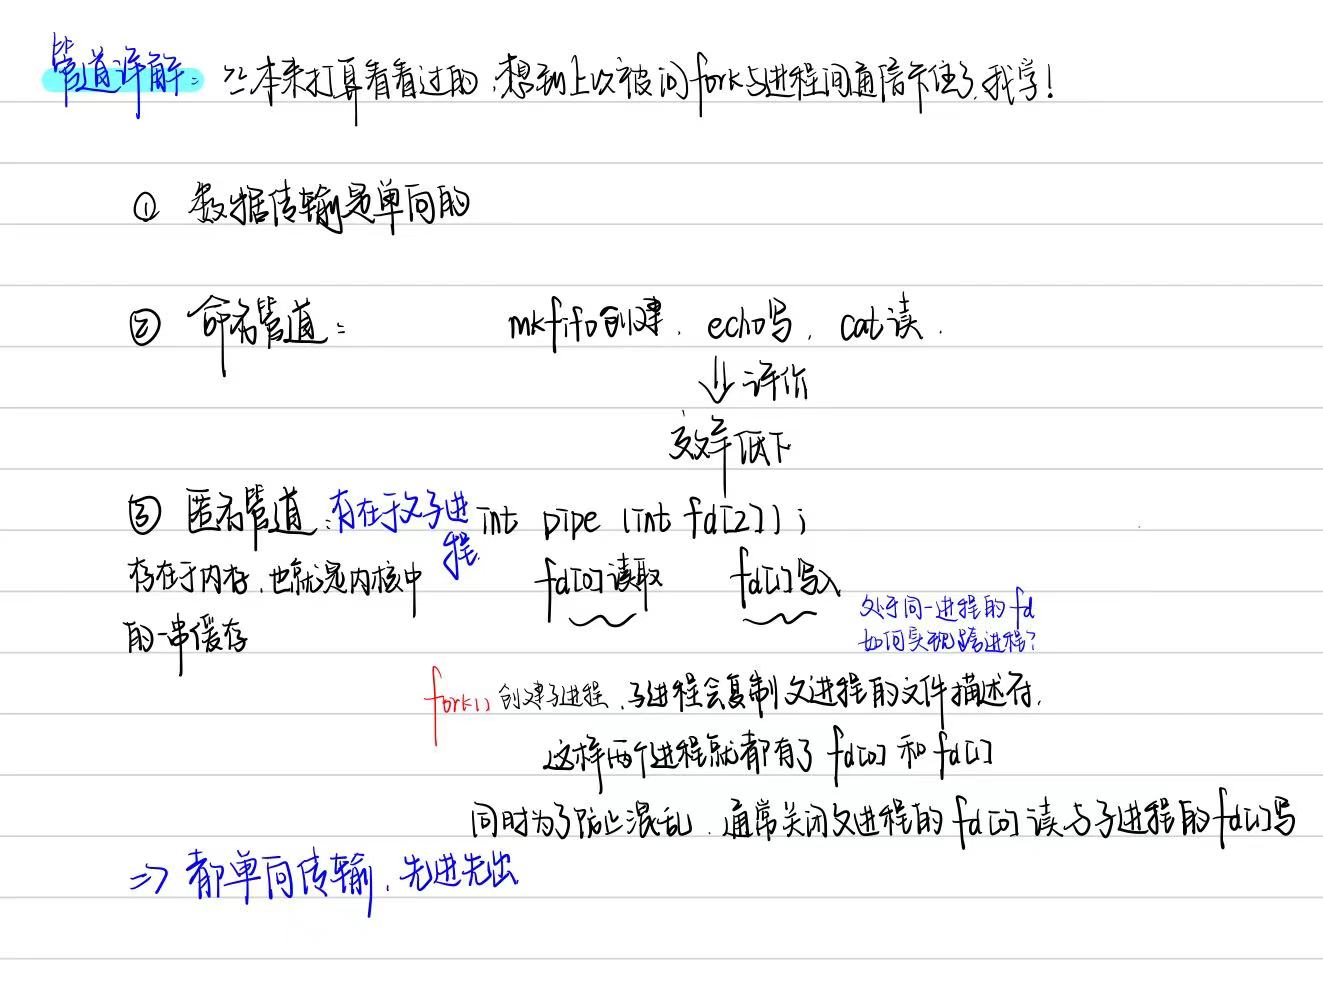 管道详解: 本来打算看看过的,想到上次被问fork与进程间通信卡住了,我学!
① 数据传输是单向的
② 命名管道: mkfifo创建, echo写, cat读.
⇓评价
效率低下
③ 匿名管道:存在于父子进程 int pipe (int fd[2]);
存在于内存,也就是内核中的一串缓存
fd[0]读取 fd[1]写入
处于同一进程的fd
如何实现跨进程?
fork() 创建子进程,子进程会复制父进程的文件描述符,
这样两个进程就都有了 fd[0] 和 fd[1]
同时为了防止混乱,通常关闭父进程的fd[0]读与子进程的fd[1]写
=> 都单向传输,先进先出